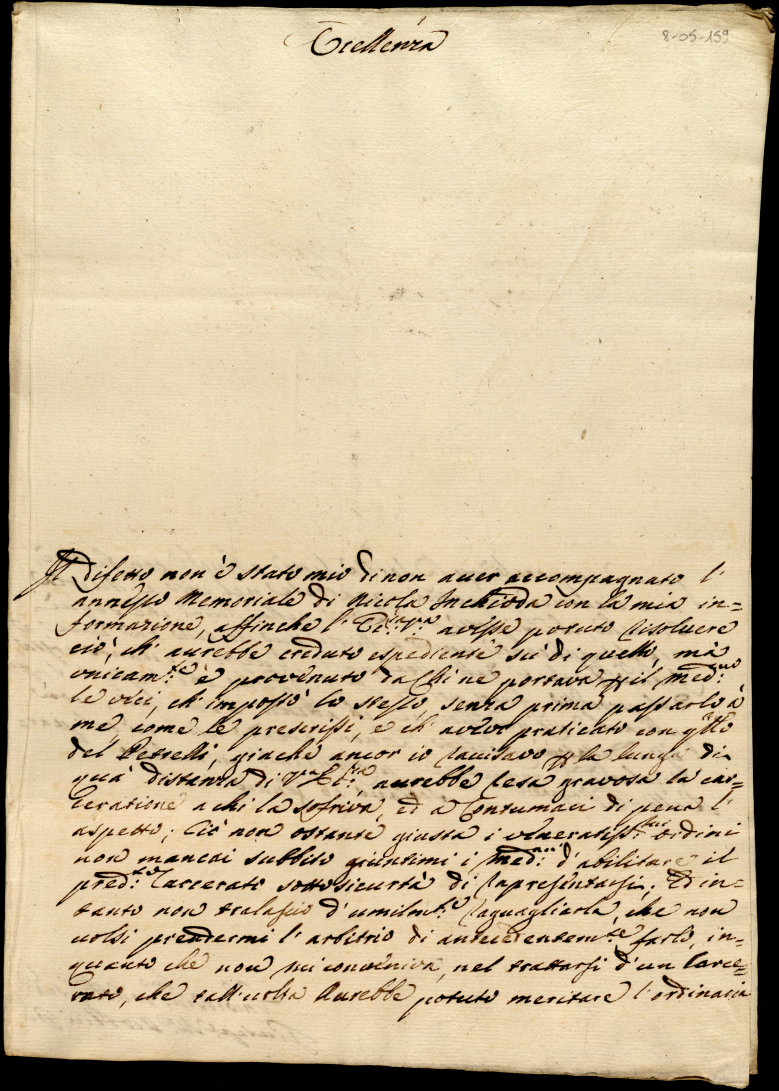 8-05-159
Eccellenza
Il Difetto non è stato mio di non aver accompagnato l'
annesso Memoriale di Nicola Inchioda con la mia in=
formazione, affinche l' avesse potuto risoluere
ciò, ch' aurebbe creduto espediente sù di quello, mà
unicam.te è provenuto da chi ne portava il med.mo
le veci, ch' impostò lo stesso, senza prima passarlo à
me, come le prescrissi, e ch' avevo praticato con
del Petrelli, giache ancor io la lunga di
quà distanza di aurebbe resa gravosa la car=
ceratione a chi la soffriva, ed a di pena l'
aspetto; Ciò non ostante giusta i veneratiss.mi ordini
non mancai subbito giuntimi i med.mi d'abilitare il
pred.to Carcerato sotto sicurtà di rapresentarsi; Ed in=
tanto non tralascio d'umilm.te raguagliarla, che non
volsi prendermi l'arbitrio di antecedentem.te farlo, in=
quanto che non mi conveniva, nel trattarsi d'un Carce=
rato, che tall'volta Aurebbe potuto meritare l'ordinaria